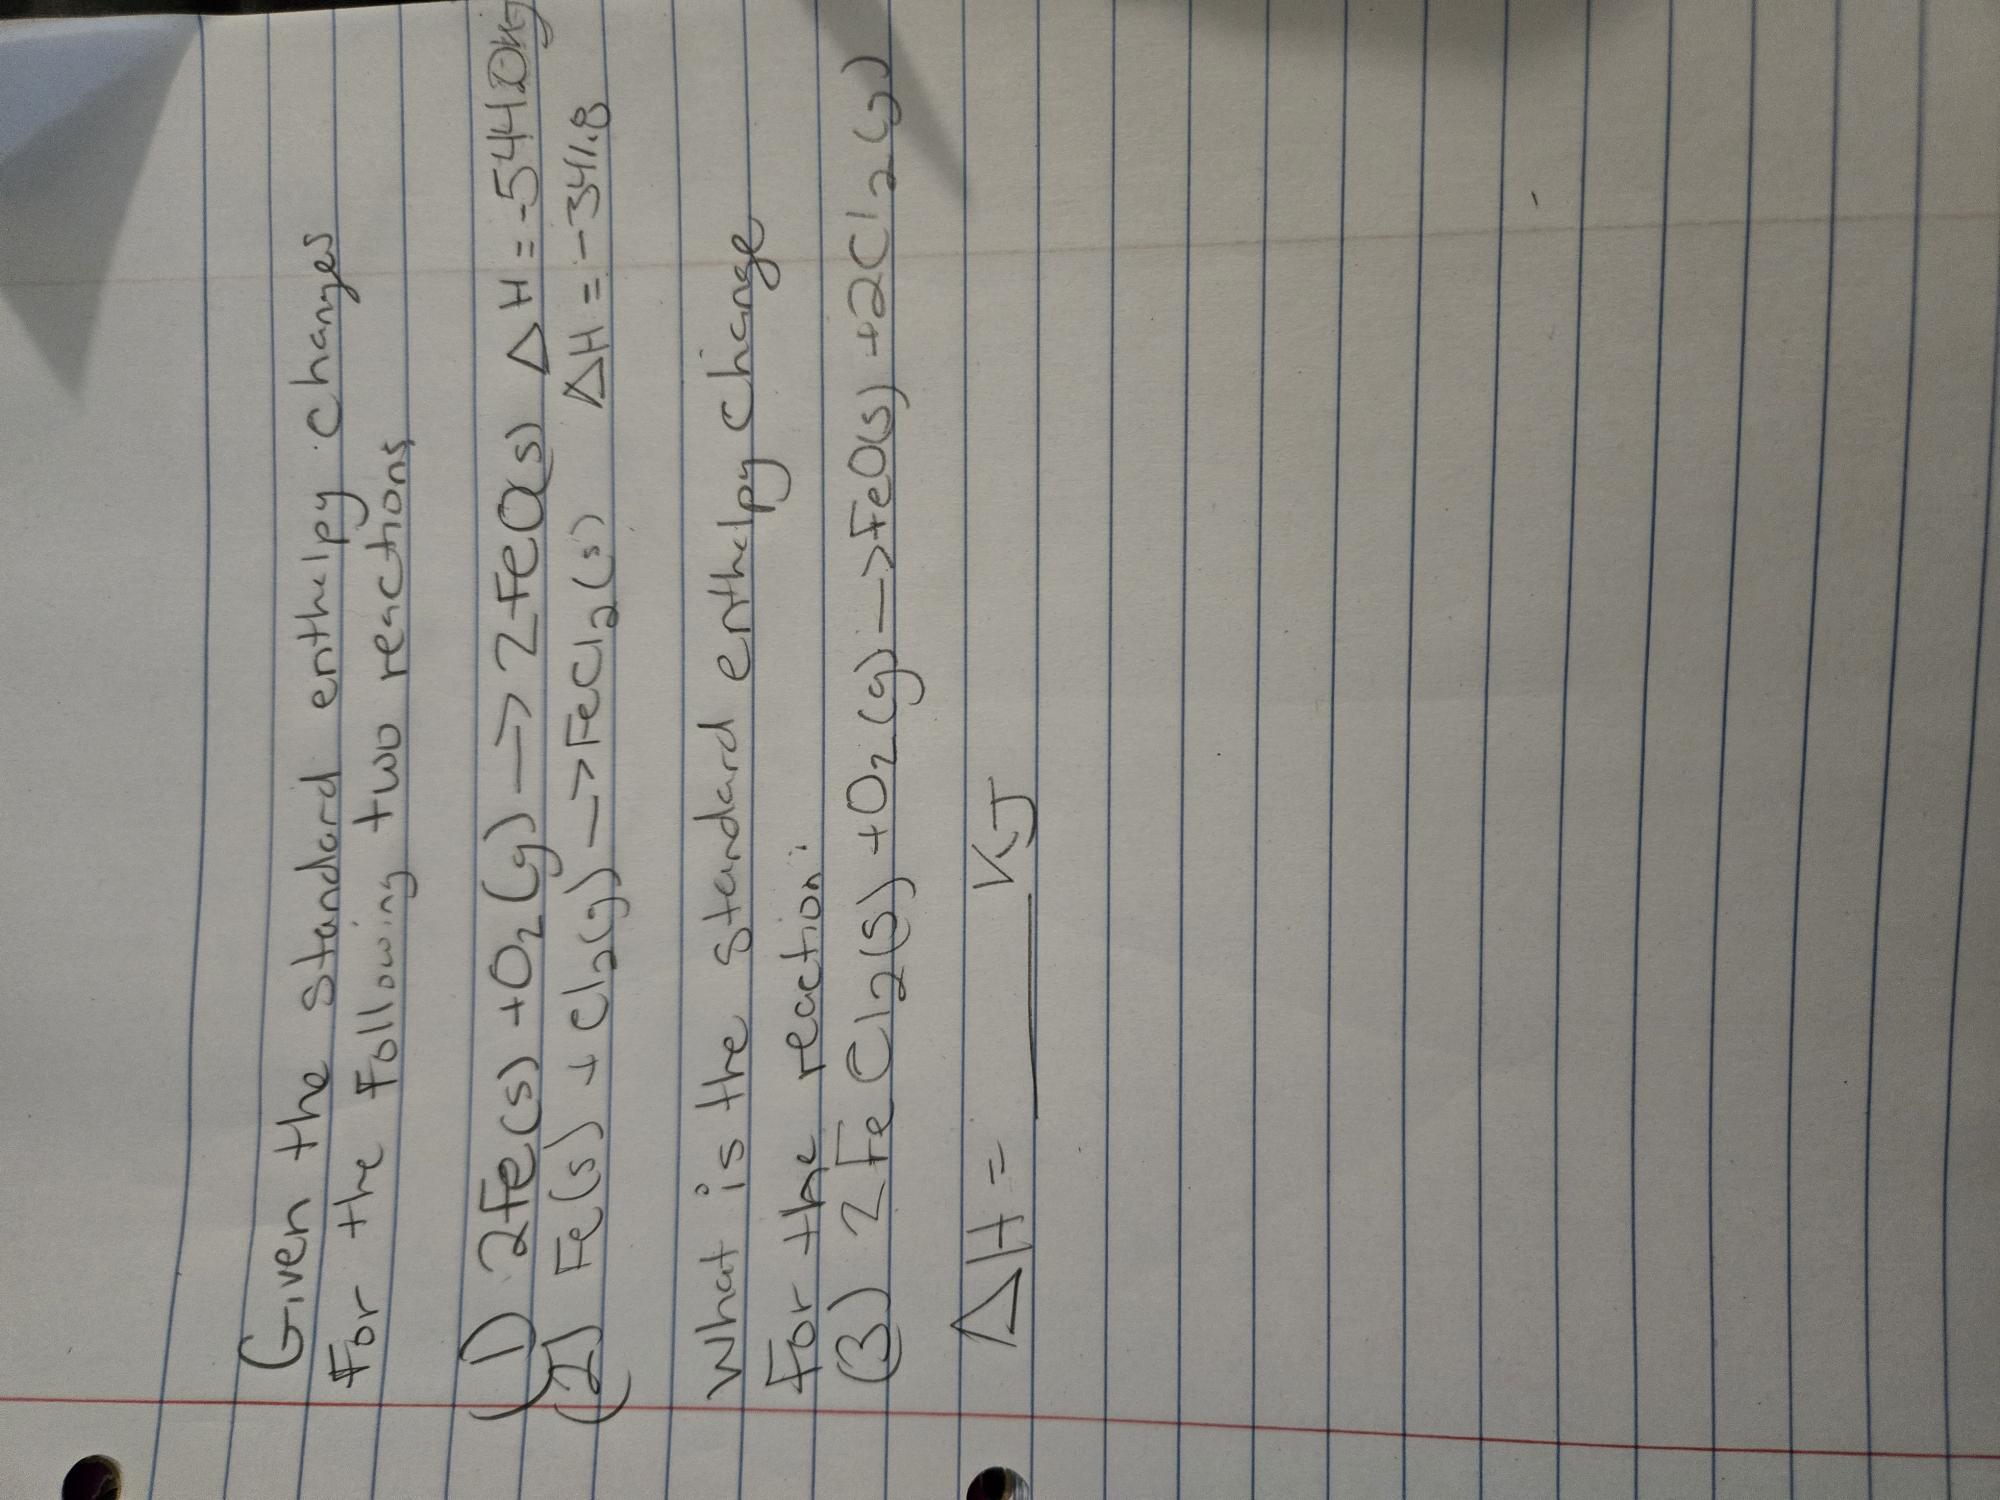 Given the standard enthelpy changes
For the Following two reactions
(1) 2Fe(s) + O2(g) —> 2FeO(s) ΔH = -544.0kJ
(2) Fe(s) + Cl2(g) —> FeCl2(s) ΔH = -341.8
What is the standard enthelpy change
For the reaction:
(3) 2FeCl2(s) + O2(g) —> FeO(s) + 2Cl2(g)
ΔH = ______ KJ